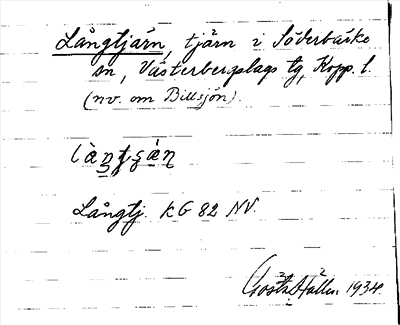 Långtjärn, tjärn i Söderbärke
sn, Västerbergslags tg, Kopp. l.
(nv. om Billsjön).
Långtj. KG 82 NV.
Gösta Hallin 1934.